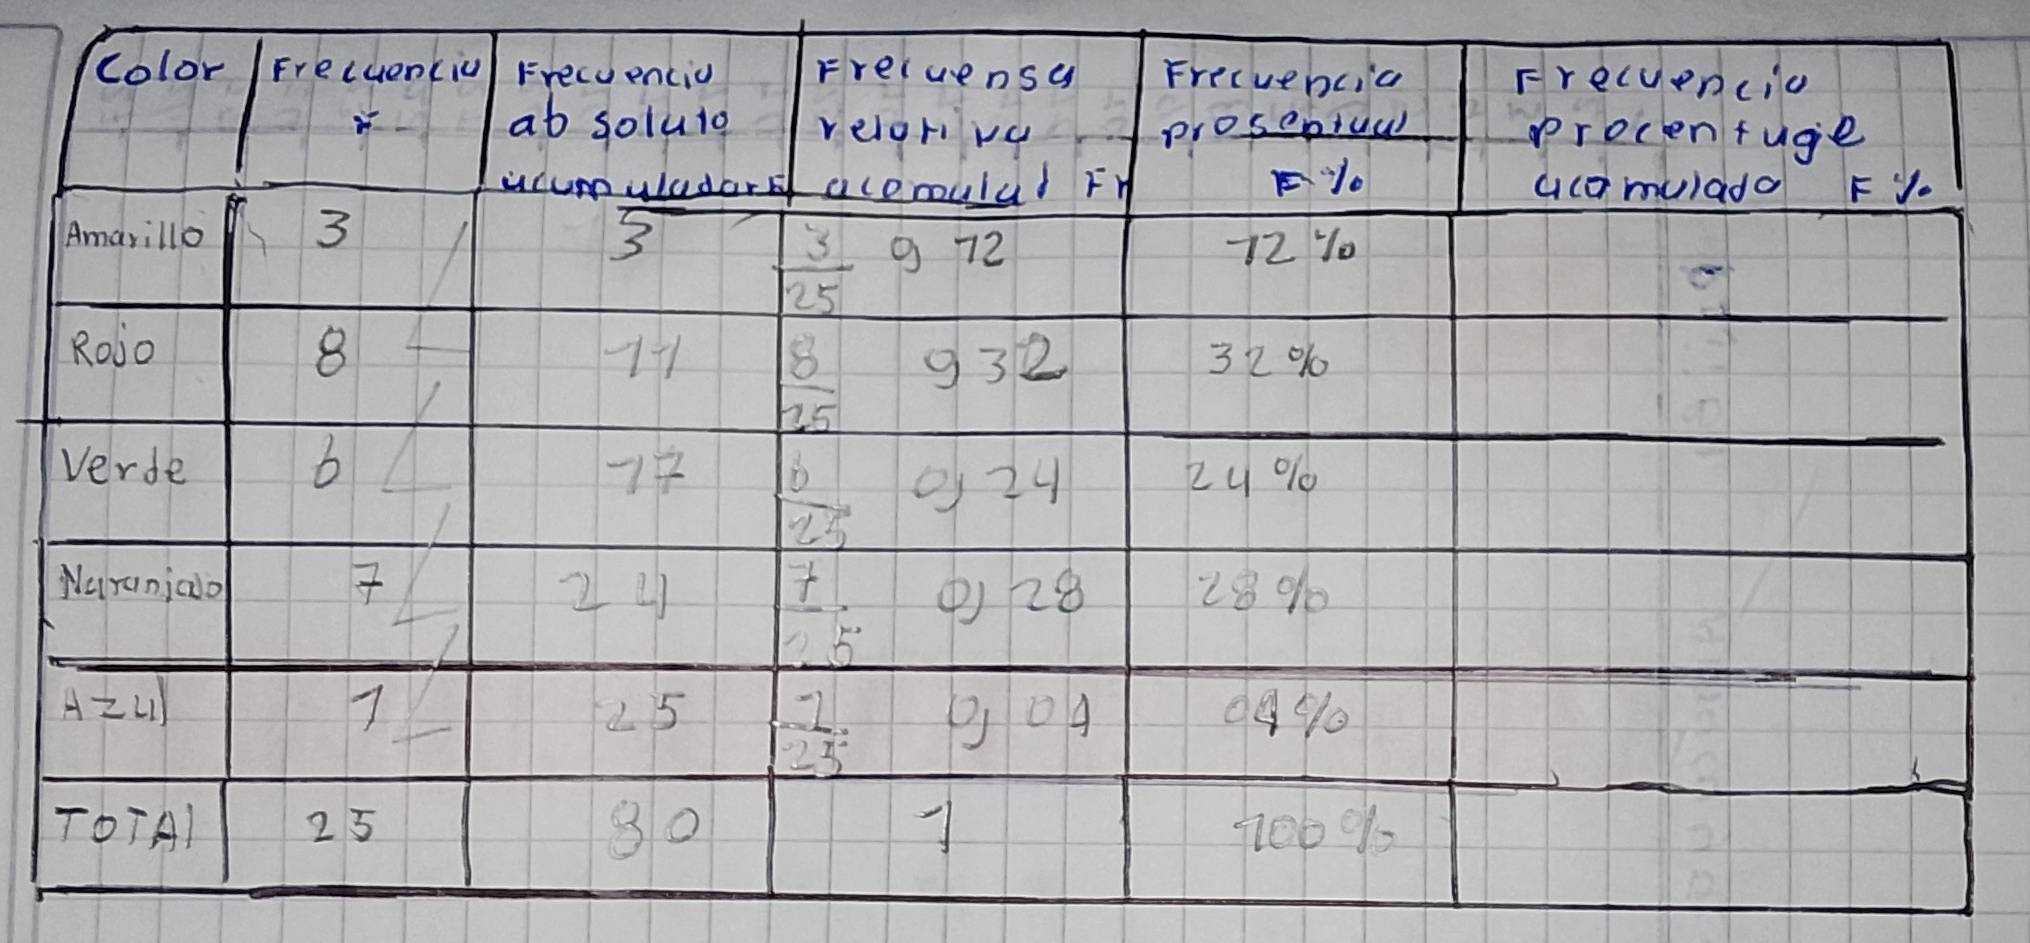 Color Frecuencia Frecuencia Frecuensa Frecuencia Frecuencia
F absoluta relativa prosentual procentage
acumuladas F acomulad Fr F % acomulado F %
Amarillo 3 3 3/25 0,12 12 %
Rojo 8 11 8/25 0,32 32 %
Verde 6 17 6/25 0,24 24 %
Naranjado 7 24 7/25 0,28 28 %
Azul 1 25 1/25 0,04 04 %
TOTAl 25 80 1 100 %